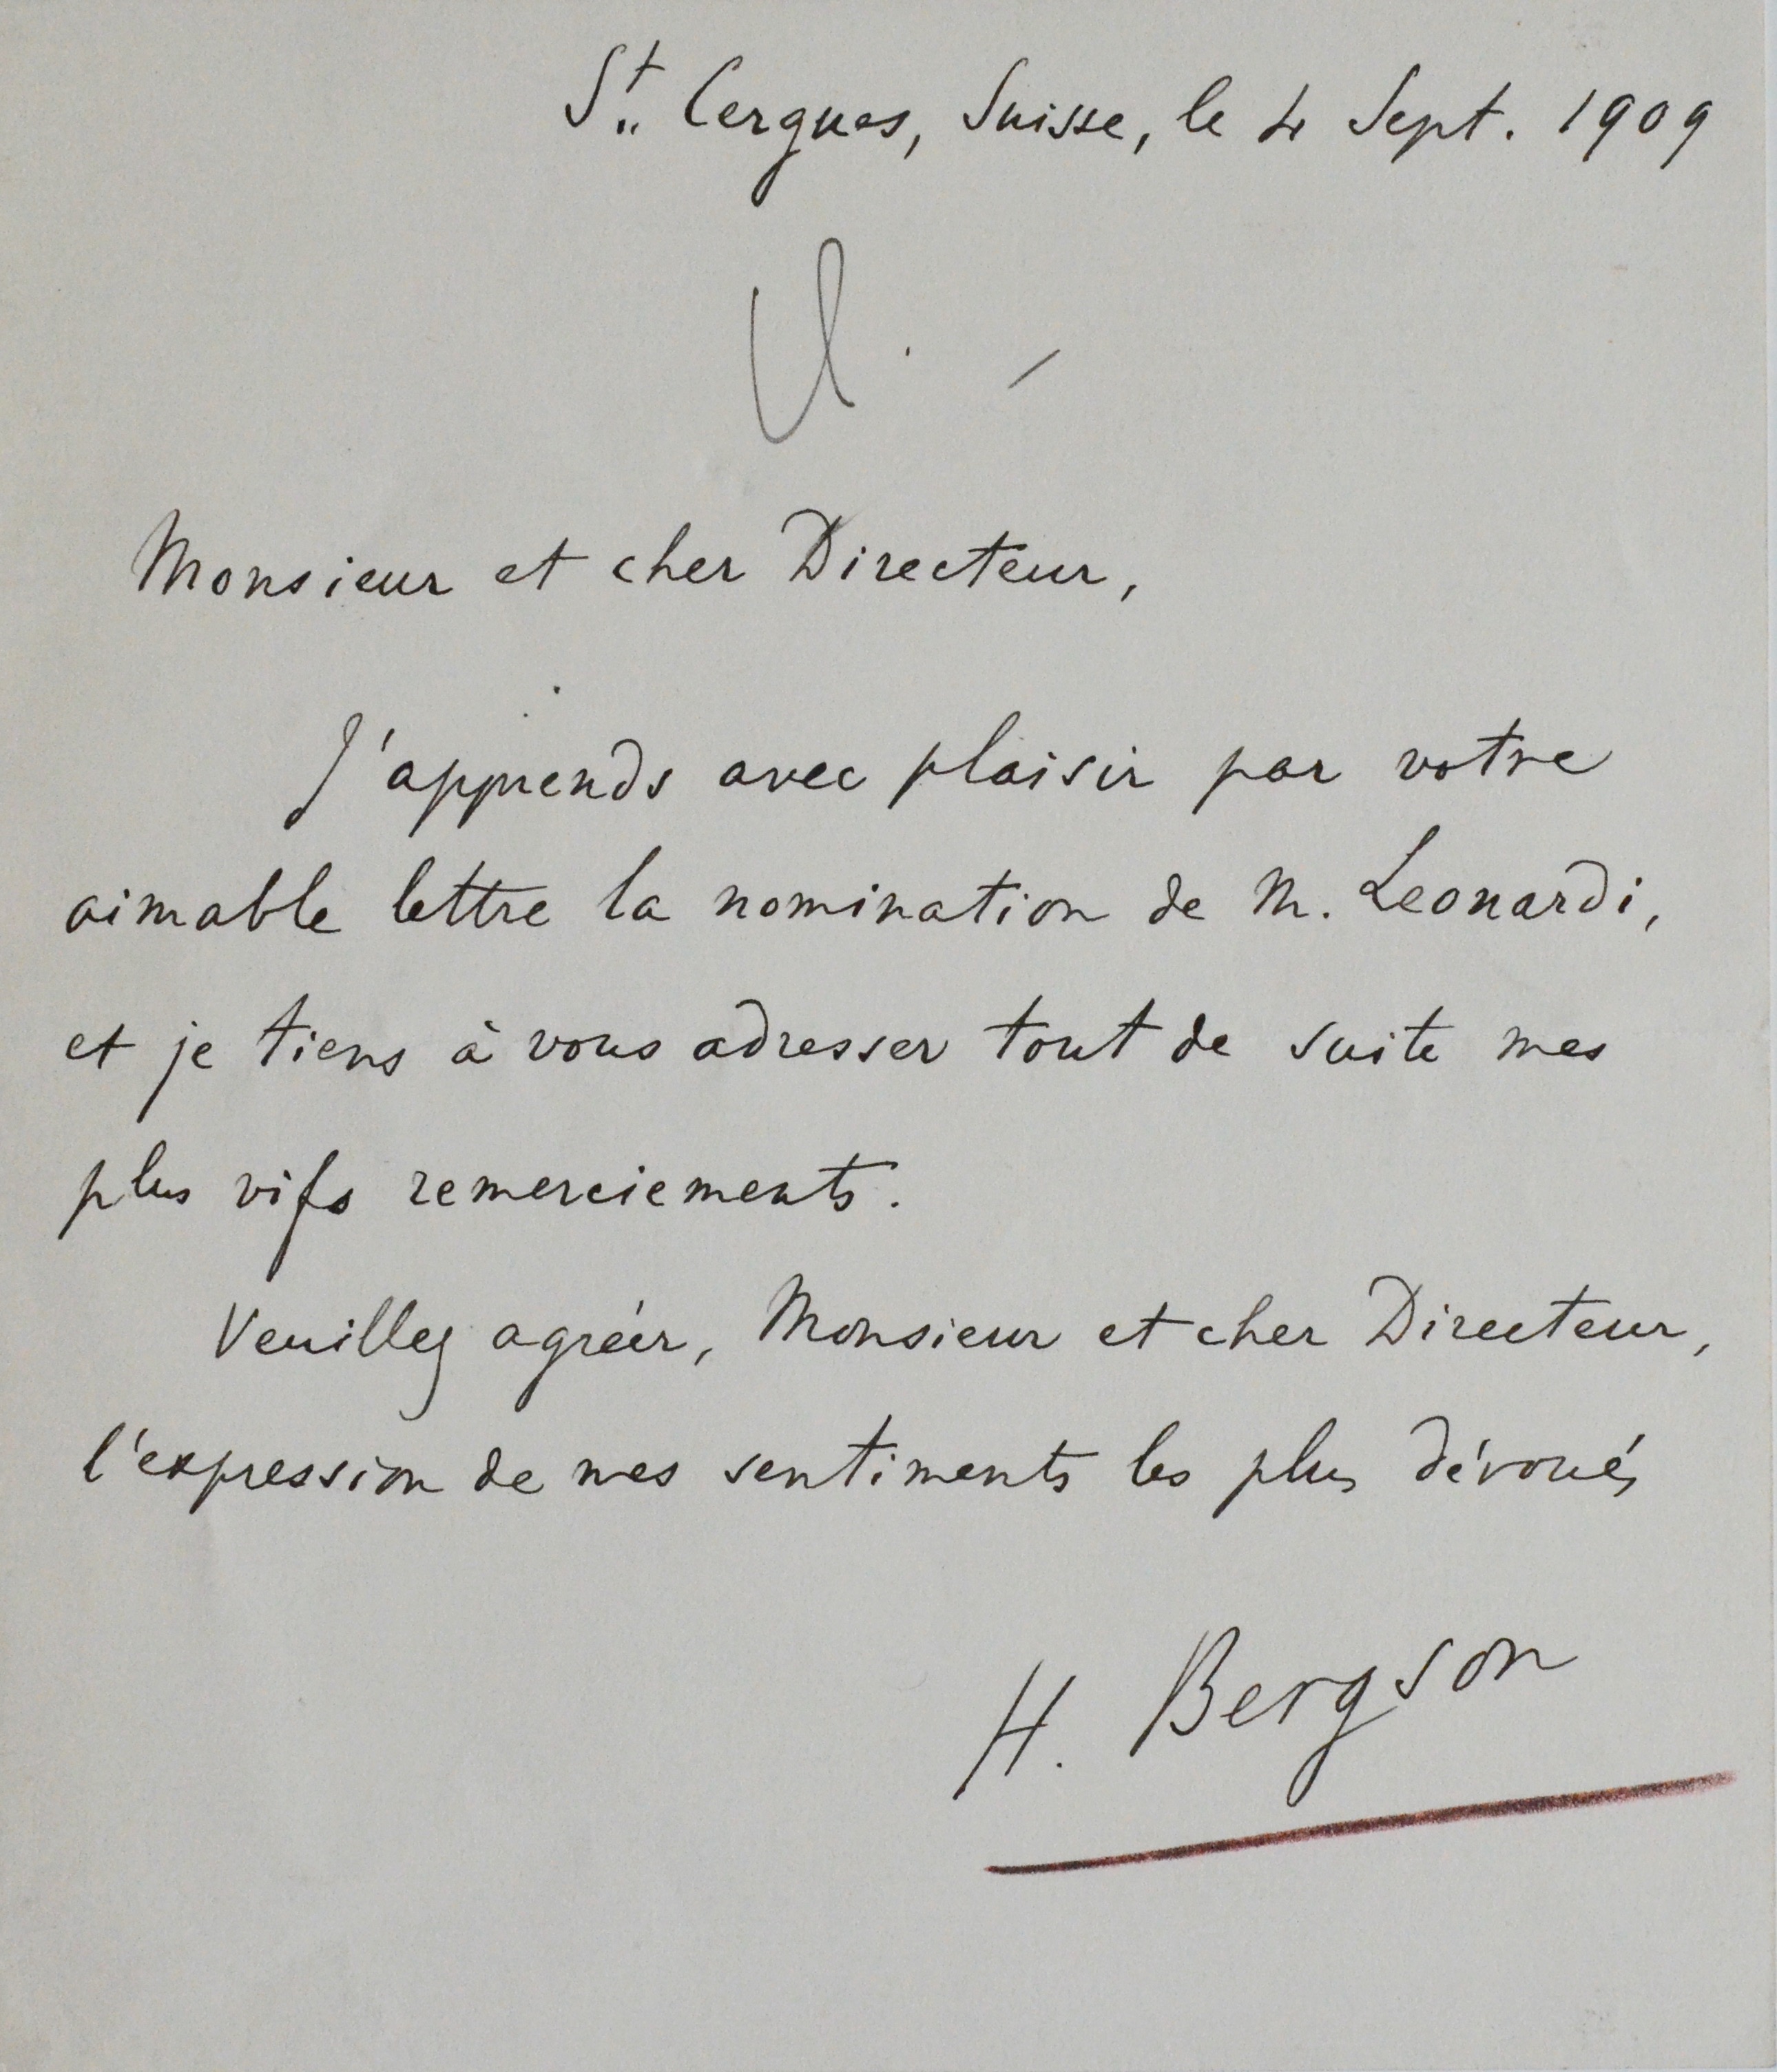 St. Cergues, Suisse, le 4 Sept. 1909
Monsieur et cher Directeur,
J'apprends avec plaisir par votre
aimable lettre la nomination de M. Leonardi,
et je tiens à vous adresser tout de suite mes
plus vifs remerciements.
Veuillez agréer, Monsieur et cher Directeur,
l'expression de mes sentiments les plus dévoués
H. Bergson